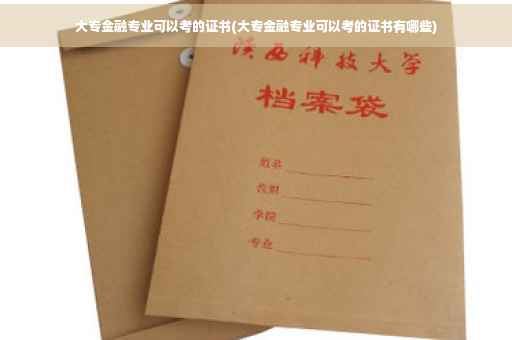 大专金融专业可以考的证书(大专金融专业可以考的证书有哪些)
陕西科技大学
档案袋
学院
专业